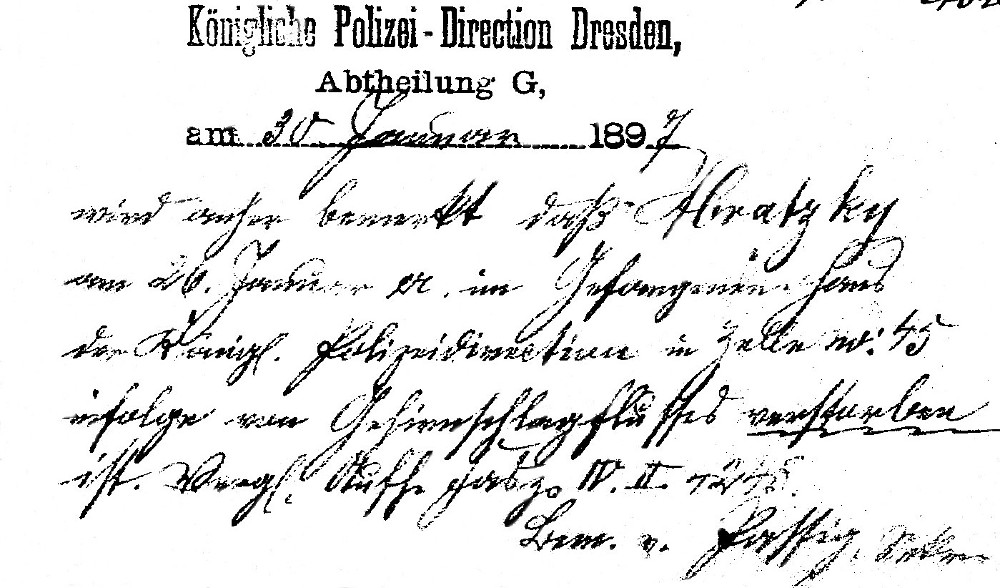 Königliche Polizei-Direction Dresden,
Abtheilung G,
am 30 Januar 1897
wird anher bemerkt daß Hratzky
am 26. Januar cr. im Gefangenen-Haus
der Königl. Polizeidirection in Zelle No: 45
infolge von Gehirnschlagflusses verstorben
ist. Vergl. IV. II.
Bem. v. Sekr